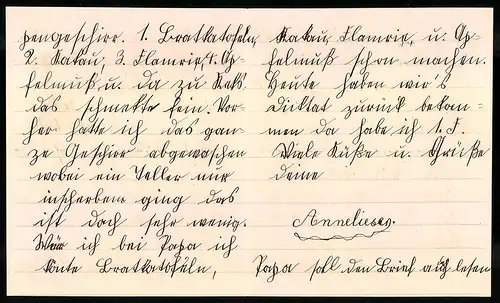 pengeschirr. 1. Bratkatofeln,
2. Kakau, 3. Flamrie, 4. Ap-
felmuß, u. da zu Keks
das schmekte fein. Vor-
her hatte ich das gan-
ze Geschirr abgewaschen
wobei ein Teller nur
inscherben ging das
ist doch sehr wenig.
Wär ich bei Papa ich
könte Bratkatofeln,
Kakau, Flamrie, u. Ap-
felmuß schon machen.
Heute haben wir's
Diktat zurück bekom-
men da habe ich 1. F.
Viele Küße u. Grüße
deine
Anneliese.
Papa soll den Brief auch lesen